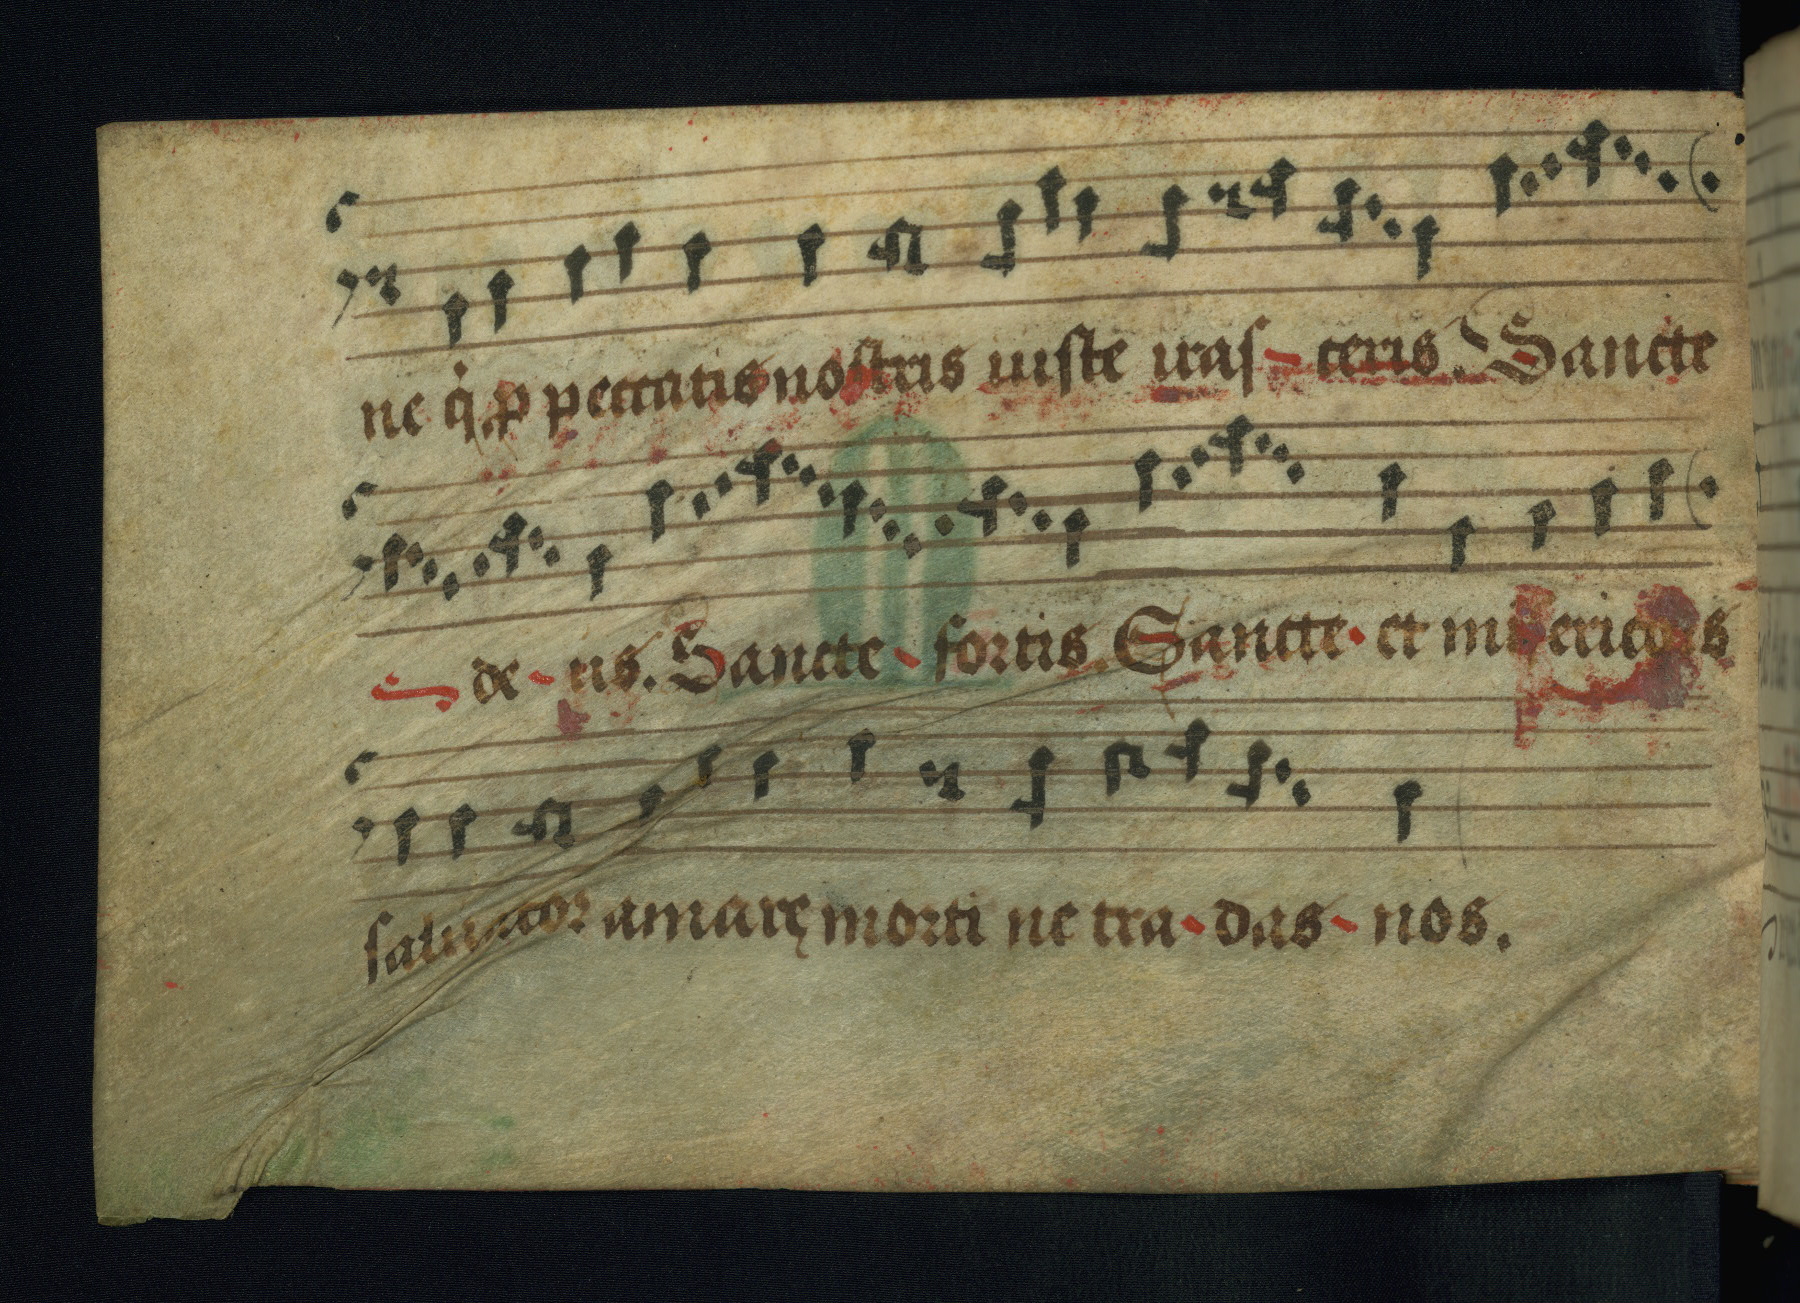 ne q̇ ꝓ peccatis nostris iuste iras-ceris. Sancte
de-us. Sancte-fortis. Sancte et misericors
saluator amarę morti ne tra-das-nos.